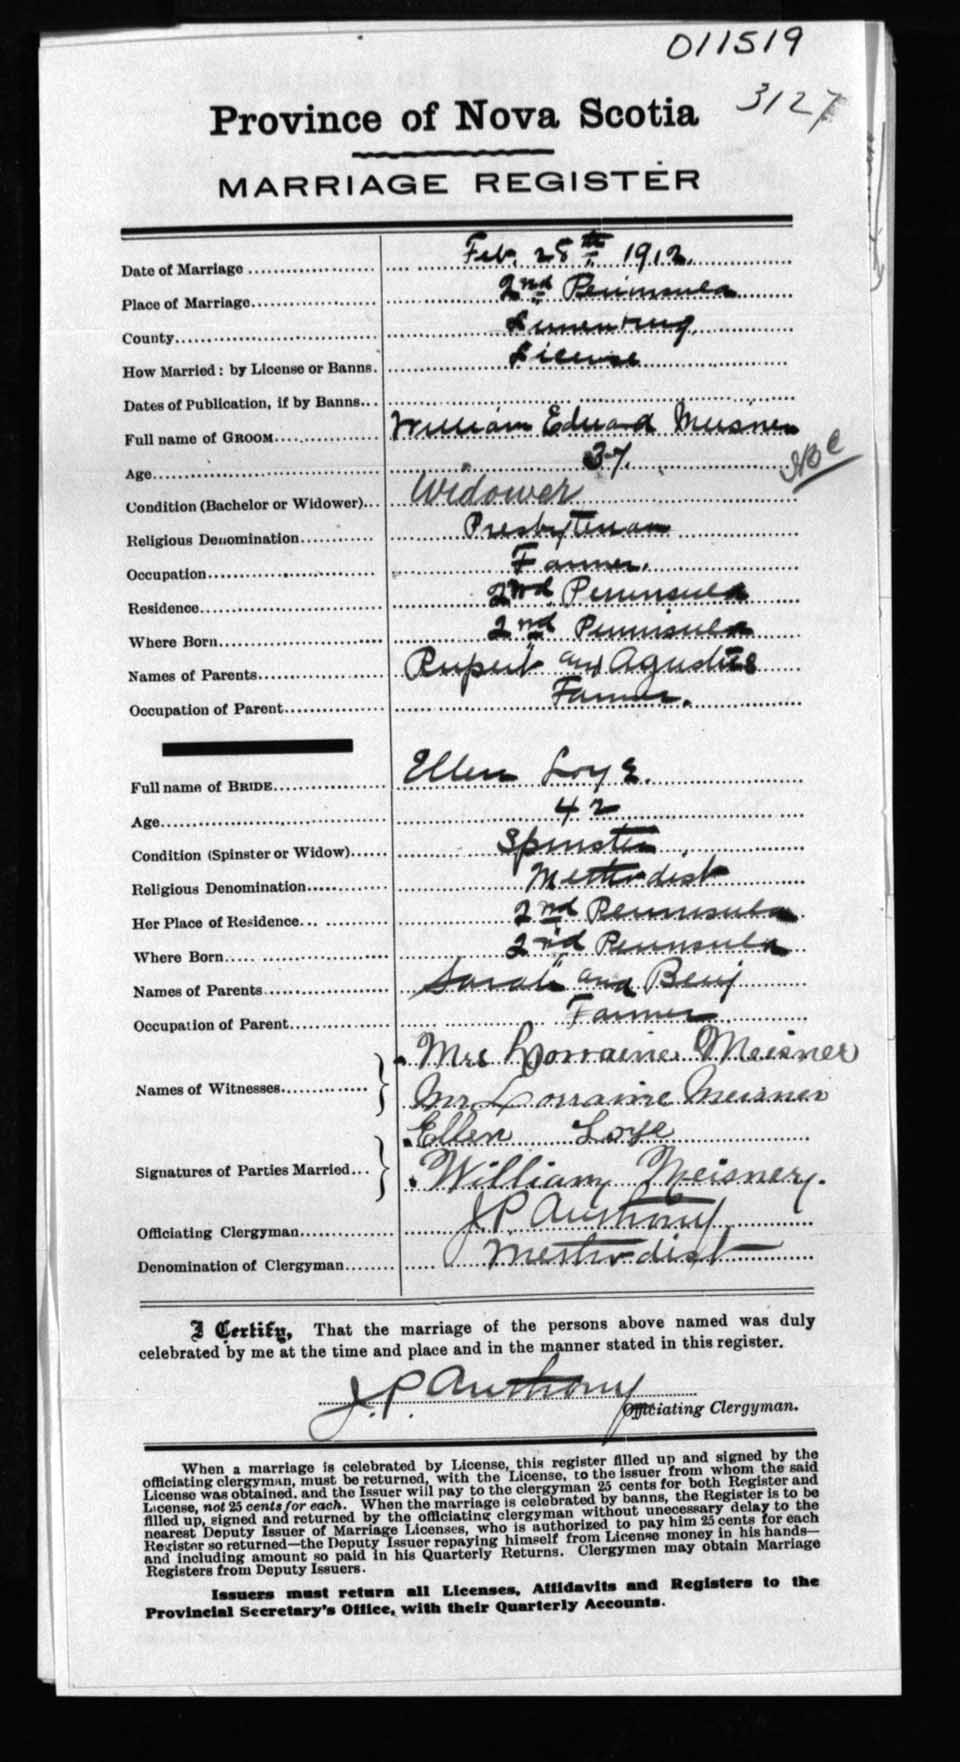 011519
3127
Province of Nova Scotia
MARRIAGE REGISTER
Date of Marriage Feb. 28th 1912.
Place of Marriage 2nd Peninsula
County Lunenburg
How Married: by License or Banns. License
Dates of Publication, if by Banns
Full name of GROOM William Eduard Meisner
Age 37.
Condition (Bachelor or Widower) Widower
Religious Denomination Presbyterian
Occupation Farmer.
Residence 2nd Peninsula
Where Born 2nd Peninsula
Names of Parents Rupert and Agustus
Occupation of Parent Farmer.
Full name of BRIDE Ellen Loye.
Age 42
Condition (Spinster or Widow) Spinster
Religious Denomination Methodist
Her Place of Residence 2nd Peninsula
Where Born 2nd Peninsula
Names of Parents Sarah and Benj
Occupation of Parent Farmer
Mrs Lorraine Meisner
Names of Witnesses
Mr. Lorraine Meisner
Ellen Loye
Signatures of Parties Married
William Meisner.
Officiating Clergyman J.P. Anthony
Denomination of Clergyman Methodist
I Certify, That the marriage of the persons above named was duly
celebrated by me at the time and place and in the manner stated in this register.
J.P. Anthony
Officiating Clergyman.
When a marriage is celebrated by License, this register filled up and signed by the
officiating clergyman, must be returned, with the License, to the issuer from whom the said
License was obtained, and the Issuer will pay to the clergyman 25 cents for both Register and
License, not 25 cents for each. When the marriage is celebrated by banns, the Register is to be
filled up, signed and returned by the officiating clergyman without unecessary delay to the
nearest Deputy Issuer of Marriage Licenses, who is authorized to pay him 25 cents for each
Register so returned—the Deputy Issuer repaying himself from License money in his hands—
and including amount so paid in his Quarterly Returns. Clergymen may obtain Marriage
Registers from Deputy Issuers.
Issuers must return all Licenses, Affidavits and Registers to the
Provincial Secretary's Office, with their Quarterly Accounts.